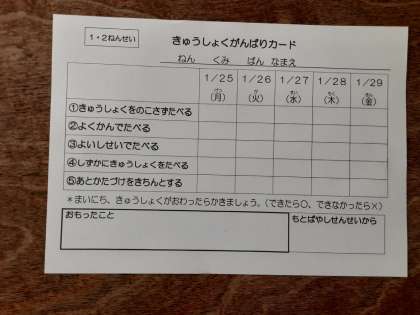 1・2ねんせい
きゅうしょくがんばりカード
ねん くみ ばん なまえ
1/25 1/26 1/27 1/28 1/29
(月) (火) (水) (木) (金)
①きゅうしょくをのこさずたべる
②よくかんでたべる
③よいしせいでたべる
④しずかにきゅうしょくをたべる
⑤あとかたづけをきちんとする
＊まいにち、きゅうしょくがおわったらかきましょう。(できたら○、できなかったら×)
おもったこと
もとばやしせんせいから